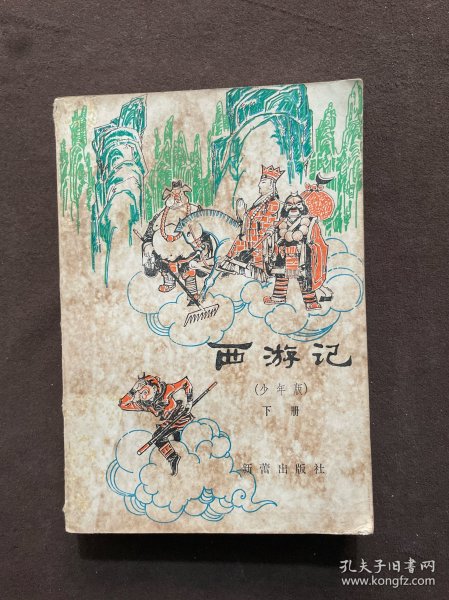 西游记
(少年版)
下册
新蕾出版社
孔夫子旧书网
www.kongfz.com